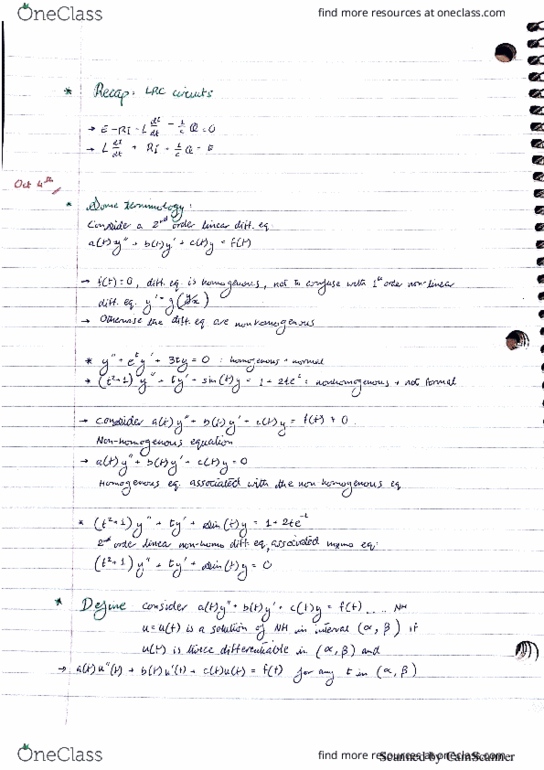 OneClass
find more resources at oneclass.com
* Recap: LRC circuits
→ E - RI - L dI/dt - 1/c Q = 0
→ L dI/dt + RI - 1/c Q = E
Oct 4th
* Some terminology:
Consider a 2nd order linear diff. eq.
a(t)y" + b(t)y' + c(t)y = f(t)
→ f(t)=0, diff. eq. is homogenous, not to confuse with 1st order non-linear
diff. eq. y' = g(y/x)
→ Otherwise the diff. eq are nonhomogenous
* y" - e^t y' + 3ty = 0 : homogenous + normal
* (t²+1)y" + ty' - sin(t)y = 1 + 2te^t : nonhomogenous + not formal
→ Consider a(t)y" + b(t)y' - c(t)y = f(t) ≠ 0.
Non-homogenous equation
→ a(t)y" + b(t)y' - c(t)y = 0
Homogenous eq. associated with the non homogenous eq
* (t²+1)y" + ty' + sin(t)y = 1 + 2te^-t
2nd order linear non-homo diff. eq, associated homo eq:
(t²+1)y" + ty' + sin(t)y = 0
* Define consider a(t)y" + b(t)y' + c(t)y = f(t) .... NH
u = u(t) is a solution of NH in interval (α, β) if
u(t) is twice differentiable in (α, β) and
→ a(t)u"(t) + b(t)u'(t) + c(t)u(t) = f(t) for any t in (α, β)
OneClass
find more resources at oneclass.com
Scanned by CamScanner